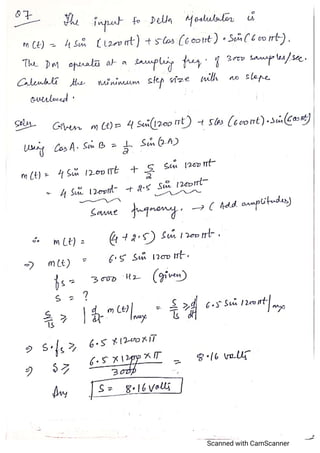 Q7 The input to Delta Modulator is
m(t) = 4 Sin (1200πt) + 5 Cos (600πt) · Sin (600πt).
The DM operates at a sampling freq. of 3000 samples/sec.
Calculate the minimum step size with no slope
overload.
Soln: Given m(t) = 4 Sin(1200πt) + 5 Cos (600πt) · Sin(600πt)
Using Cos A · Sin B = 1/2 Sin(2A)
m(t) = 4 Sin 1200πt + 5/2 Sin 1200πt
= 4 Sin 1200πt + 2.5 Sin 1200πt
Same frequency. → (Add amplitudes)
∴ m(t) = (4 + 2.5) Sin 1200πt.
⇒ m(t) = 6.5 Sin 1200πt.
fs = 3000 Hz (given)
S = ?
S/Ts ≥ |d/dt m(t)|max = S/Ts ≥ d/dt | 6.5 Sin 1200πt |max
⇒ S·fs ≥ 6.5 × 1200 × π
⇒ S ≥ 6.5 × 1200 × π / 3000 = 8.16 volts
Ans S = 8.16 Volts
Scanned with CamScanner